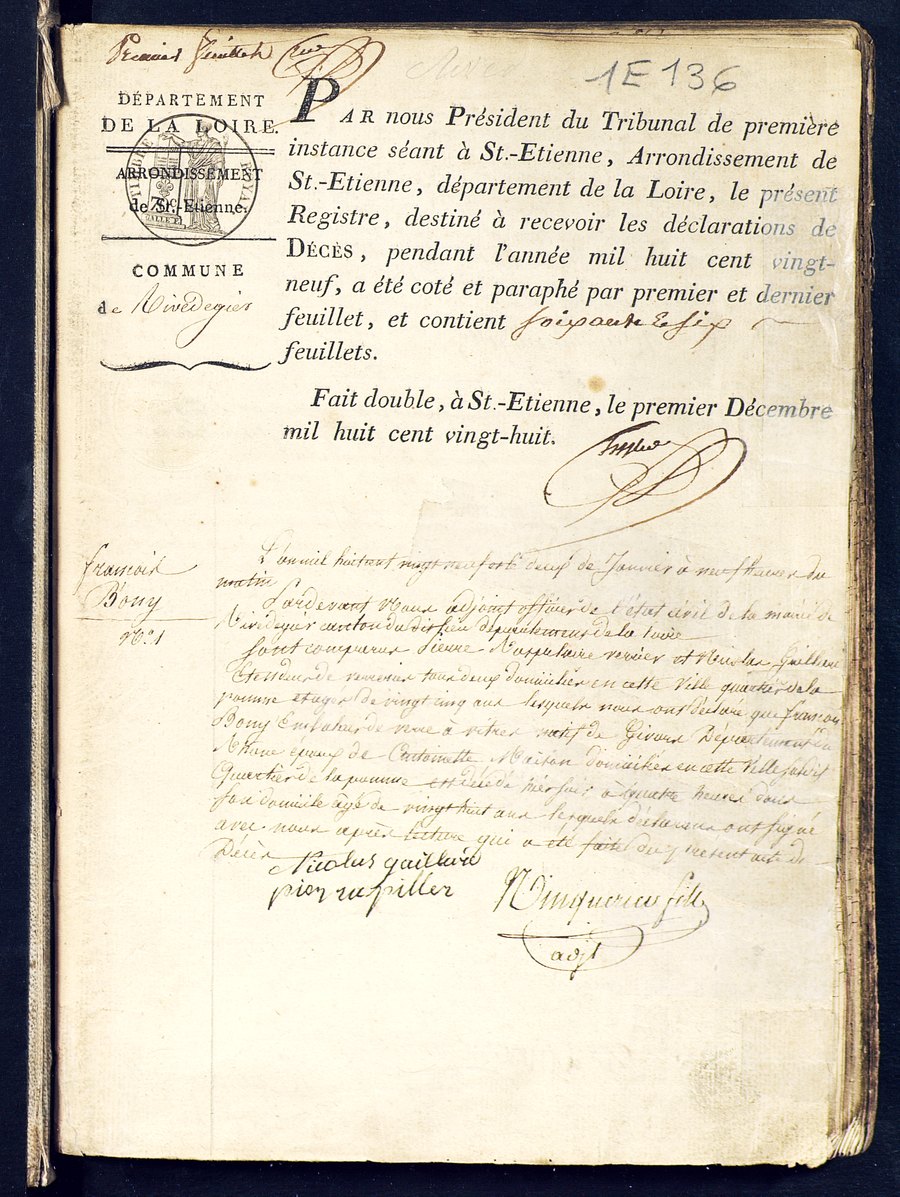 Premier feuillet
1E136
DÉPARTEMENT
DE LA LOIRE.
TIMBRE ROYAL
ARRONDISSEMENT
de St.-Etienne.
COMMUNE
de Rivedegier
PAR nous Président du Tribunal de première
instance séant à St.-Etienne, Arrondissement de
St.-Etienne, département de la Loire, le présent
Registre, destiné à recevoir les déclarations de
DÉCÈS, pendant l'année mil huit cent vingt-
neuf, a été coté et paraphé par premier et dernier
feuillet, et contient soixante & six
feuillets.
Fait double, à St.-Etienne, le premier Décembre
mil huit cent vingt-huit.
francois
Bony
No. 1
L'an mil huit cent vingt neuf et le deux de Janvier à neuf heures du
matin
Pardevant Nous adjoint officier de l'état civil de la mairie de
Rivedegier canton du dit lieu Département de la Loire
sont comparus pierre verrier et Nicolas Gaillard
Etendeur de verre tous deux domiciliés en cette Ville quartier de la
pomme et agés de vingt cinq ans lesquels nous ont déclaré que francois
Bony de verre à vitres natif de Givors Département du
Rhone epoux de Antoinette domicilié en cette Ville susdit
Quartier de la pomme est décédé hier soir à quatre heures dans
son domicile agé de vingt huit ans lesquels déclarans ont signé
avec nous après lecture qui a été faite du present acte de
Décès
Nicolas gaillard
fils
adjt